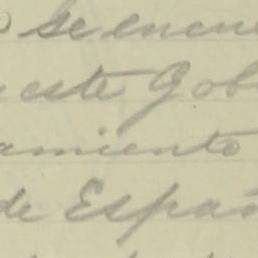 se encue
este Gob
amiento
de Españ